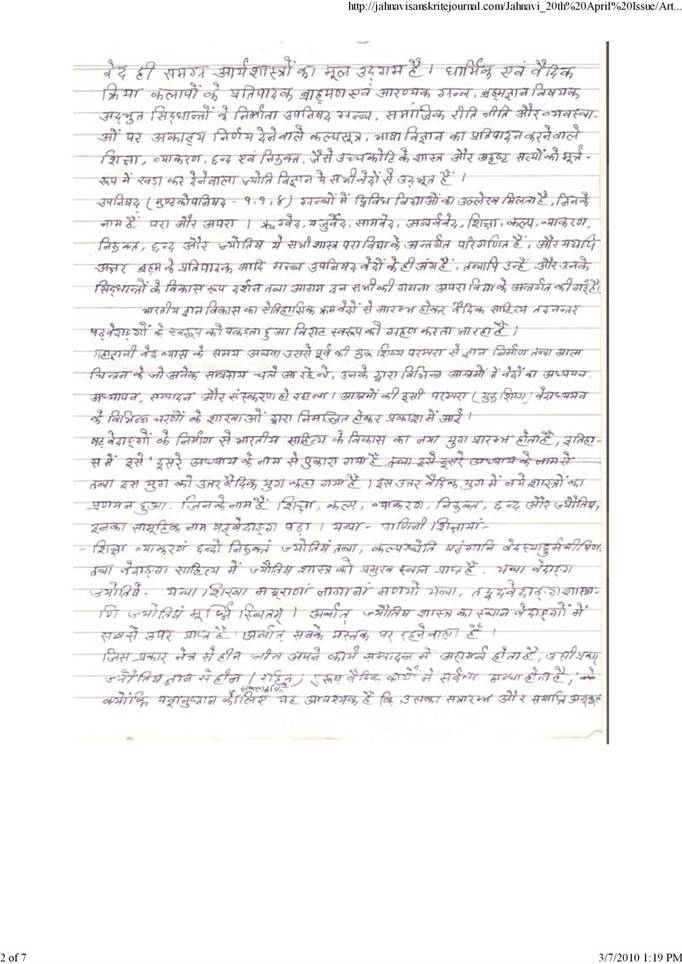 http://jahnavisanskritejournal.com/Jahnavi_20th%20April%20Issue/Art...
वेद ही समग्र आर्यशास्त्रों का मूल उद्गम है । धार्मिक एवं वैदिक
क्रिया कलापों के प्रतिपादक ब्राह्मण एवं आरण्यक ग्रन्थ, ब्रह्मज्ञान विषयक
अद्भुत सिद्धान्तों के निर्माता उपनिषद ग्रन्थ, सामाजिक रीति नीति और व्यवस्था-
ओं पर अकाट्य निर्णय देनेवाले कल्पसूत्र, भाषा विज्ञान का प्रतिपादन करनेवाले
शिक्षा, व्याकरण, छन्द एवं निरुक्त, जैसे उच्चकोटि के शास्त्र और अदृष्ट सत्यों को मूर्त्त-
रूप में खडा कर देनेवाला ज्योति विज्ञान ये सभी वेदों से उद्भूत हैं ।
उपनिषद (मुण्डकोपनिषद - १.१.४) ग्रन्थों में द्विविध विद्याओं का उल्लेख मिलता है, जिनके
नाम हैं परा और अपरा । ऋग्वेद, यजुर्वेद, सामवेद, अथर्ववेद, शिक्षा, कल्प, व्याकरण,
निरुक्त, छन्द और ज्योतिष ये सभी शास्त्र परा विद्या के अन्तर्गत परिगणित हैं, और यद्यपि
अक्षर ब्रह्म के प्रतिपादक आदि ग्रन्थ उपनिषद वेदों के ही अंग हैं, तथापि उन्हें और उनके
सिद्धान्तों के विकास रूप दर्शन तथा आगम इन सभी की गणना अपरा विद्या के अन्तर्गत की गई है।
भारतीय ज्ञान विकास का ऐतिहासिक क्रम वेदों से आरम्भ होकर वैदिक साहित्य तदनन्तर
षड्वेदाङ्गों के स्वरूप को पकडता हुआ विराट स्वरूप को ग्रहण करता जा रहा है ।
वेद व्यास के समय अथवा उससे पूर्व की गुरु शिष्य परम्परा से ज्ञान निर्माण तथा आत्म
चिन्तन के जो अनेक सम्प्रदाय चले आ रहे थे, उनके द्वारा विभिन्न आश्रमों में वेदों का अध्ययन,
अध्यापन, सम्पादन और संस्करण हो रहा था । आश्रमों की इसी परम्परा (गुरु शिष्य) वेदाध्ययन
के विभिन्न चरणों के शाखाओं द्वारा होकर प्रकाश में आई ।
षड्वेदाङ्गों के निर्माण से भारतीय साहित्य के विकास का नया युग प्रारम्भ होता है, इतिहा-
स में इसे दूसरे अध्याय के नाम से पुकारा गया है, तथा इसे दूसरे अध्याय के नाम से
तथा इस युग को उत्तर वैदिक युग कहा गया है । इस उत्तर वैदिक युग में नये शास्त्रों का
प्रणयन हुआ. जिनके नाम हैं शिक्षा, कल्प, व्याकरण, निरुक्त, छन्द और ज्योतिष,
इनका सामूहिक नाम षड्वेदाङ्ग पड़ा । यथा - पाणिनी शिक्षायां-
- शिक्षा व्याकरणं छन्दो निरुक्तं ज्योतिषं तथा, कल्पश्चेति षडंगानि वेदस्याहुर्मनीषिण.
तथा वेदाङ्ग साहित्य में ज्योतिष शास्त्र को प्रमुख स्थान प्राप्त है. यथा वेदाङ्ग
ज्योतिषे- यथा शिखा मयूराणां नागानां मणयो यथा, तद्वद्वेदाङ्गशास्त्रा-
णि ज्योतिषं मूर्ध्नि स्थितम् । अर्थात् ज्योतिष शास्त्र का स्थान वेदाङ्गों में
सबसे उपर प्राप्त है अर्थात् सबके मस्तक पर रहनेवाला है ।
जिस प्रकार नेत्र से हीन जीव अपने कार्य सम्पादन में असमर्थ होता है, उसी प्रकार
ज्योतिष ज्ञान से हीन (रहित) पुरूष वैदिक कार्यों में सर्वथा अन्धा होता है,
क्योंकि यज्ञानुष्ठान के लिए यह आवश्यक है कि उसका समारम्भ और समाप्ति अनुकूल
2 of 7
3/7/2010 1:19 PM